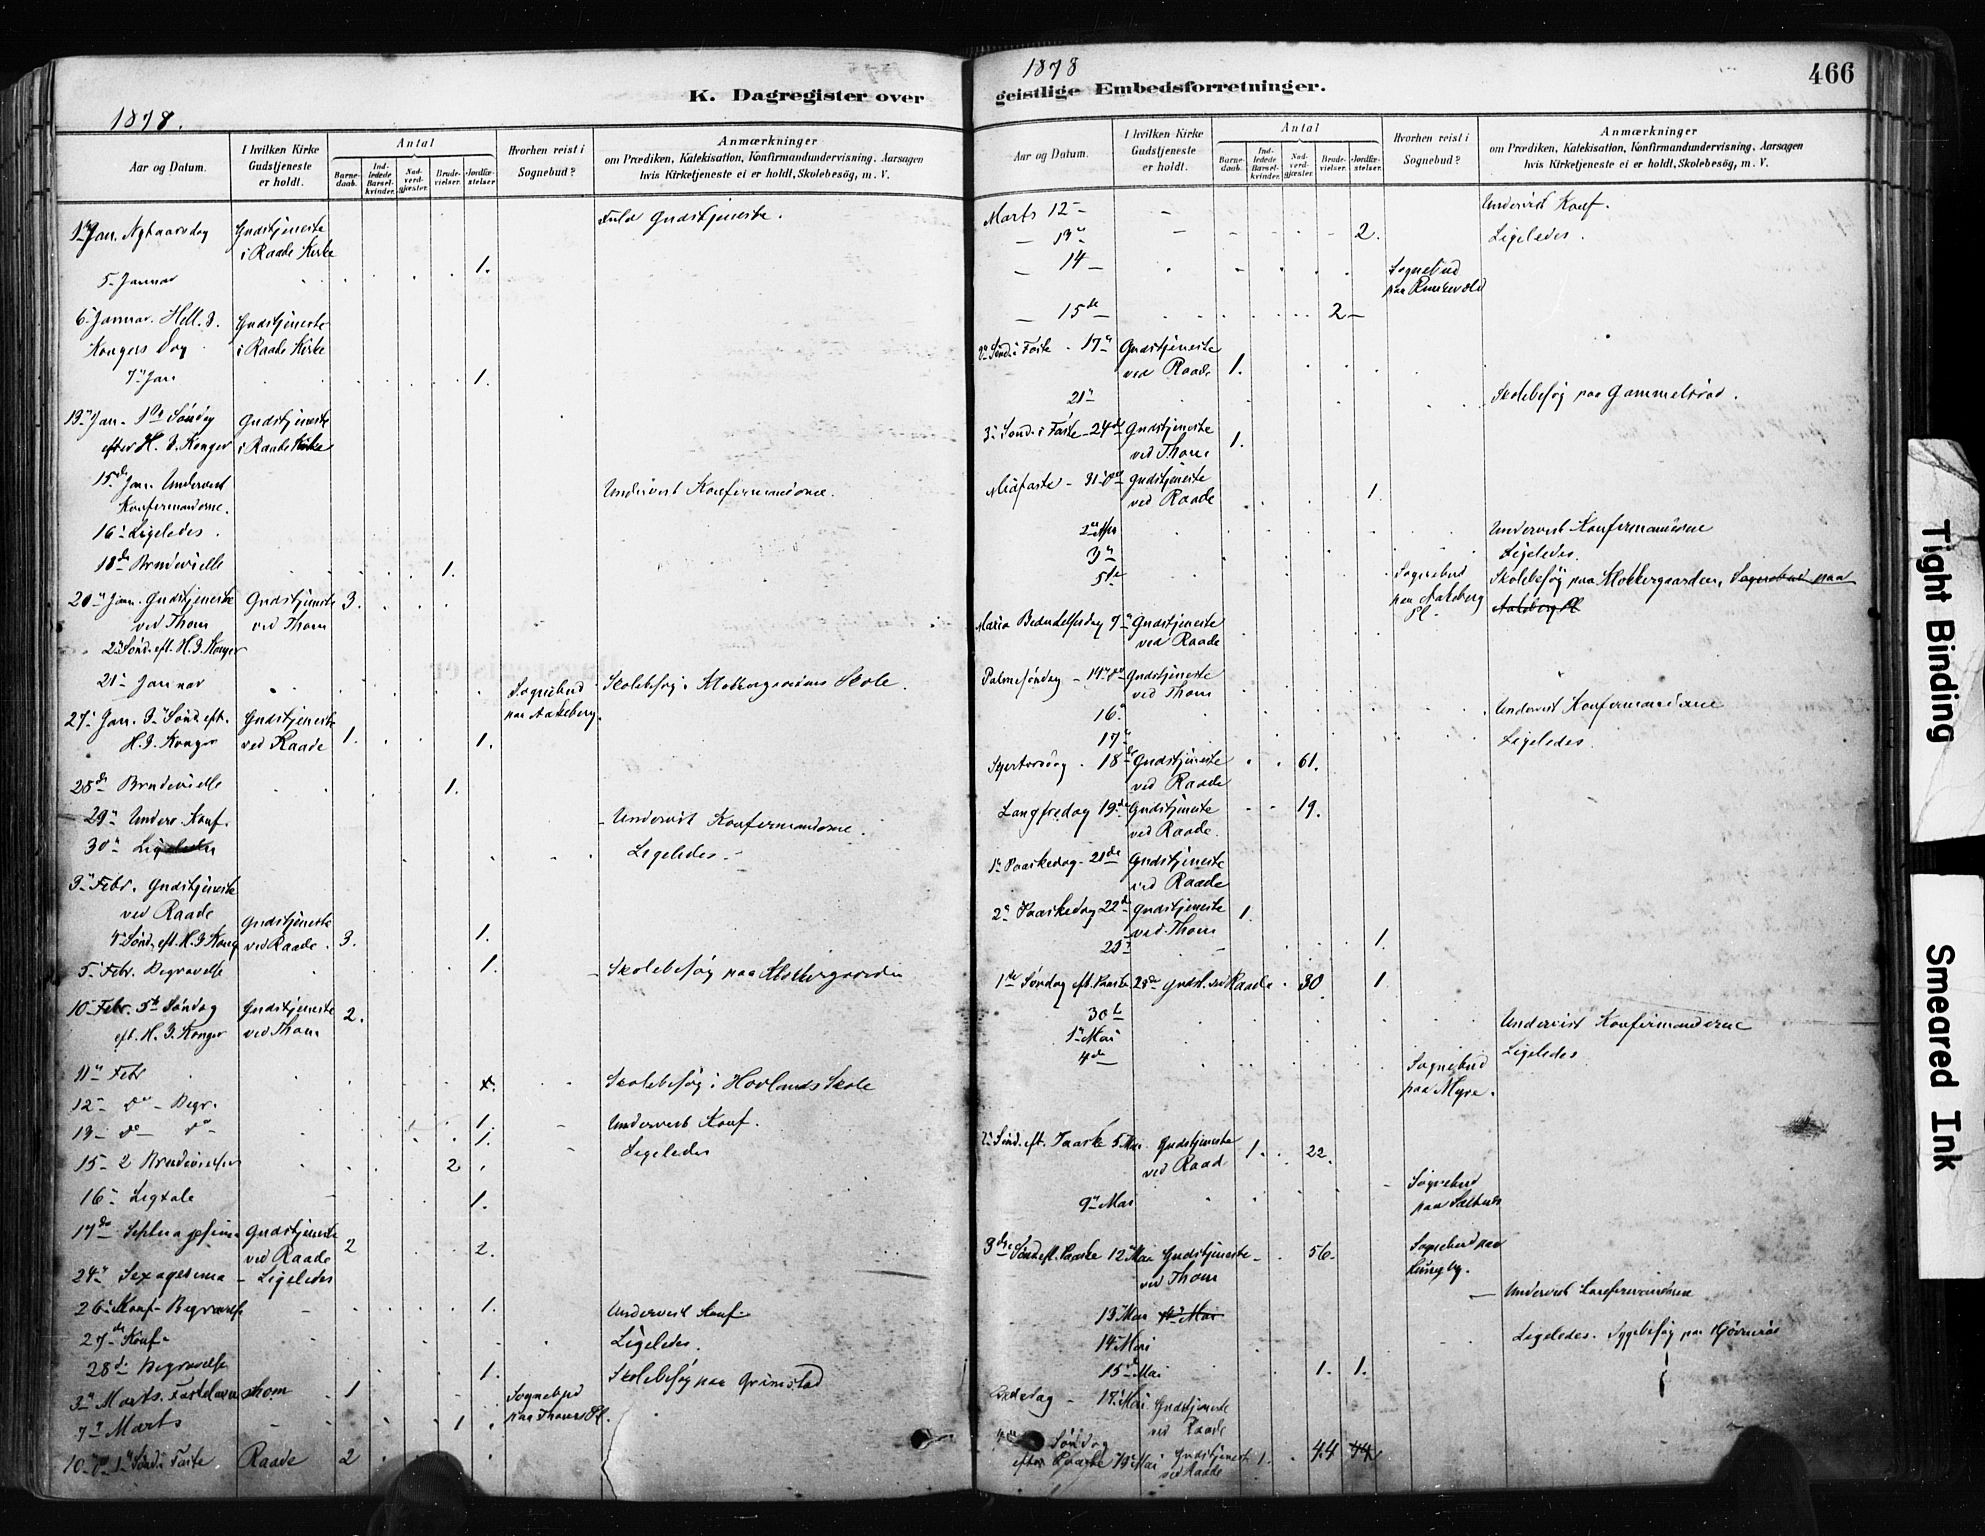 1878.
K. Dagregister over
Aar og Datum.
I hvilken Kirke Gudstjeneste er holdt.
Antal
Barnedaab.
Indledede Barselkvinder.
Nadverdgjæster.
Brudevielser.
Jordfæstelser
Hvorhen reist i Sognebud?
Anmærkninger
om Prædiken, Katekisation, Konfirmandundervisning. Aarsagen
hvis Kirketjeneste ei er holdt, Skolebesøg, m. V.
1ste Jan. Nytaarsdag Gudstjeneste Fuld Gudstjeneste.
i Raade Kirke
5- Januar 1.
6- Januar. Hell. 3. Gudstjeneste
Kongers Dag i Raade Kirke
7- Jan 1.
13- Jan. 1ste Søndag Gudstjeneste
efter H. 3. Konger i Raade Kirke
15de Jan. Undervist Undervist Konfirmanderne.
Konfirmanderne.
16- Ligeledes.
18de Brudevielse 1.
20- Jan. Gudstjeneste Gudstjeneste 3.
ved Thom ved Thom
2- Sønd. eft. H. 3. Konger
21- Januar Sognebud Skolebesøg i Klokkergaardens Skole.
paa Aakeberg.
27- Jan. 3- Sønd eft. Gudstjeneste
H. 3. Konger ved Raade 1. 1.
28de Brudevielse 1.
29- Underv. Konf. Undervist Konfirmanderne.
30- Ligeledes Ligeledes.
3- Febr. Gudstjeneste
ved Raade Gudstjeneste
4- Sønd. eft. H. 3 Kong ved Raade. 3. 1.
5- Febr. Begravelse 1. Skolebesøg paa Klokkergaarden
10- Febr. 5te Søndag Gudstjeneste 2.
eft. H. 3. Konger ved Thom
11- Febr Skolebesøg i Hovlands Skole
12- do - Begr. 1. Undervist Konf.
13- do do 1. Ligeledes
15- 2 Brudevielser 2
16- Ligtale 1.
17de Septuagesima Gudstjeneste 2 2.
ved Raade
24- Sexagesima - Ligeledes
26- Konf- Begravelse 1. Undervist Konf-
27de Konf- Ligeledes.
28d- Begravelse 1. Skolebesøg paa Grimstad
3- Marts. Fastelavn Thom 1 Sognebud
7- Marts 1 paa Thoms Pl.
10- do 1- Sønd i Faste Raade 2
1878
geistlige Embedsforretninger.
466
Aar og Datum.
I hvilken Kirke Gudstjeneste er holdt.
Antal
Barnedaab.
Indledede Barselkvinder.
Nadverdgjæster.
Brudevielser.
Jordfæstelser.
Hvorhen reist i Sognebud?
Anmærkninger
om Prædiken, Katekisation, Konfirmandundervisning, Aarsagen
hvis Kirketjeneste ei er holdt, Skolebesøg, m. V.
Marts 12- Undervist Konf.
- 13- 2. Ligeledes.
- 14 - Sognebud
paa
- 15de 2-
2- Sønd i Faste - 17- Gudstjeneste
ved Raade 1.
21- Skolebesøg paa Gammelsrød.
3- Sønd. i Faste - 24de Gudstjeneste 1.
ved Thom
Midfaste - 31- Gudstjeneste 1.
ved Raade
2- Apr Undervist Konfirmanderne
3- Ligeledes.
5te Sognebud Skolebesøg paa Klokkergaarden, Sognebud paa
paa Aakeberg Aakeberg Pl
Pl.
Maria Bebudelsesdag 7- Gudstjeneste
ved Raade
Palmesøndag - 14- Gudstjeneste
ved Thom
16- Undervist Konfirmanderne
17- Ligeledes.
Skjertorsdag. 18de Gudstjeneste 61.
ved Raade
Langfredag 19de Gudstjeneste 19.
ved Raade.
1- Paaskedag - 21de Gudstjeneste
ved Raade
2- Paaskedag 22de Gudstjeneste 1.
ved Thom
23- 1.
1ste Søndag eft. Paaske 28de Gudst. ved Raade 30 1
30te Undervist Konfirmanderne
1- Mai Ligeledes
4de Sognebud
paa Myre.
2- Sønd. eft. Paaske 5 Mai Gudstjeneste 1. 22.
ved Raade
9- Mai Sognebud
paa
3die Sønd eft. Paaske 12- Mai Gudstjeneste 56. Sognebud paa
ved Thom
13- Mai Undervist Konfirmanderne
14- Mai Ligeledes. Sygebesøg paa
15de Mai 1. 1.
Bededag - 17- Mai Gudstjeneste
ved Raade
4de Søndag
efter Paaske 19- Mai Gudstjenest 1. 44 44
ved Raade
Tight Binding
Smeared Ink